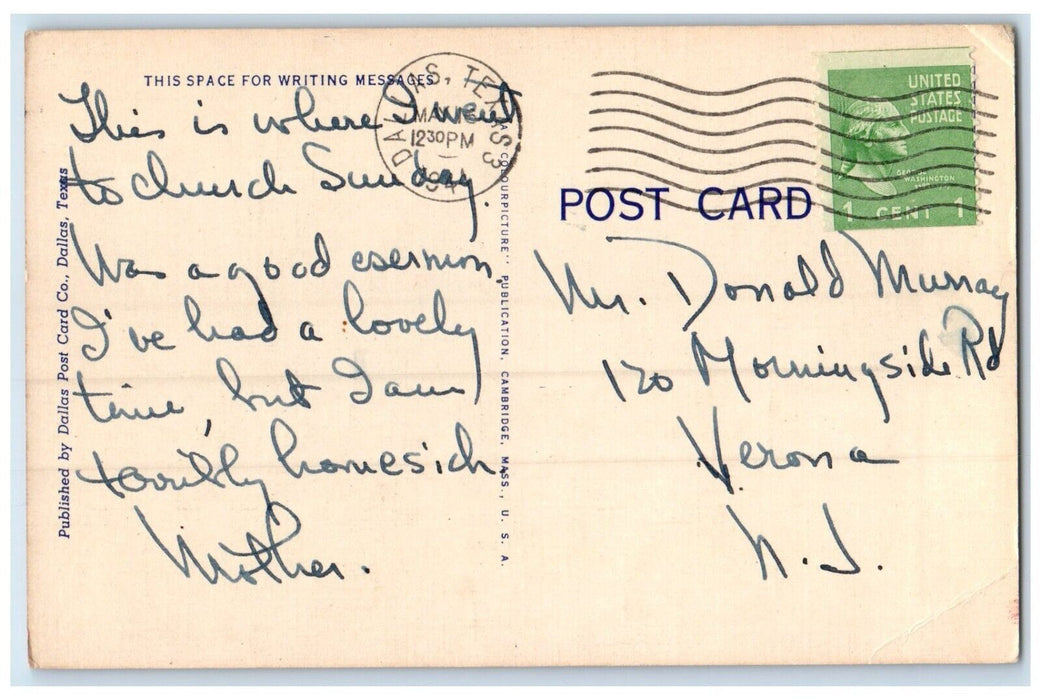 THIS SPACE FOR WRITING MESSAGES
This is where I went
to church Sunday.
Was a good sermon,
I've had a lovely
time, but I am
terribly homesick,
Mother.
Published by Dallas Post Card Co., Dallas, Texas
COLOURPICTURE" PUBLICATION, CAMBRIDGE, MASS., U. S. A.
DALLAS, TEXAS
1230PM
POST CARD
UNITED
STATES
POSTAGE
GEORGE
WASHINGTON
1 CENT 1
Mr. Donald Murray
120 Morningside Rd
Verona
N. J.